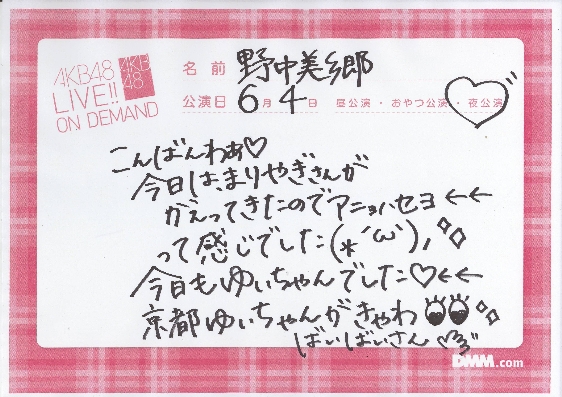 AKB48
LIVE!!
ON DEMAND
AKB
48
名前 野中美郷
公演日 6月4日 昼公演・おやつ公演・夜公演
こんばんわぁ♡
今日は、まりやぎさんが
がえってきたのでアニョハセヨ←←
って感じでした(*´ω`),
今日もゆいちゃんでした♡←←
京都ゆいちゃんがきゃわ
ばいばいさん
DMM.com